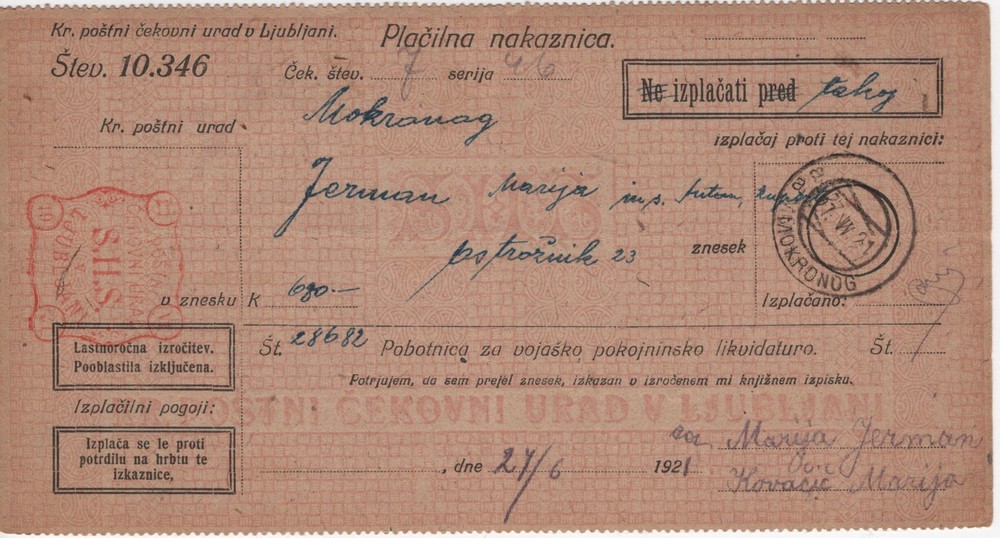 Kr. poštni čekovni urad v Ljubljani.
Plačilna nakaznica.
Štev. 10.346
Ček. štev. 7 serija 46
Ne izplačati pred takoj
Kr. poštni urad
Mokronog
izplačaj proti tej nakaznici:
Jerman Marija
23
znesek
MOKRONOG
S.H.S.
v znesku K 630.—
Izplačano:
Lastnoročna izročitev.
Pooblastila izključena.
Št. 28682 Pobotnica za vojaško pokojninsko likvidaturo. Št.
Potrjujem, da sem prejel znesek, izkazan v izročenem mi knjižnem izpisku.
Izplačilni pogoji:
POŠTNI ČEKOVNI URAD V LJUBLJANI
Izplača se le proti
potrdilu na hrbtu te
izkaznice,
, dne 27/6 1921
za Marija Jerman
Kovačič Marija